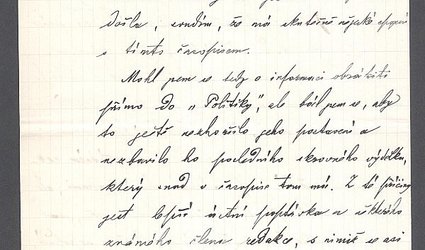 došla, soudím, že má skutečně nějaké spojení
s tímto časopisem.
Mohl jsem se tedy o informaci obrátiti
přímo do „Politiky“, ale bál jsem se, aby
to ještě nezhoršilo jeho postavení a
nezbavilo ho posledního skrovného výdělku,
který snad v časopise tom má. Z té příčiny
jest lepší ústní poptávka u některého
známého člena redakce, s nímž se asi